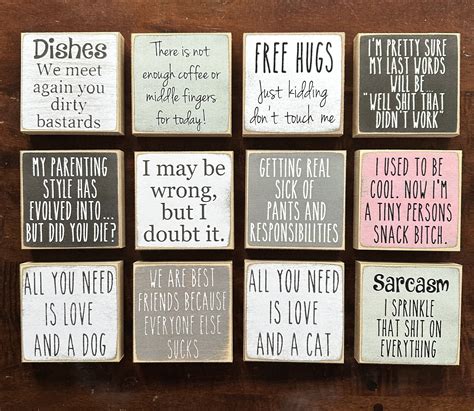 Dishes
We meet
again you
dirty
bastards
There is not
enough coffee or
middle fingers
for today!
FREE HUGS
Just kidding
don't touch me
I'M PRETTY SURE
MY LAST WORDS
WILL BE...
"WELL SHIT THAT
DIDN'T WORK"
MY PARENTING
STYLE HAS
EVOLVED INTO...
BUT DID YOU DIE?
I may be
wrong,
but I
doubt it.
GETTING REAL
SICK OF
PANTS AND
RESPONSIBILITIES
I USED TO BE
COOL. NOW I'M
A TINY PERSONS
SNACK BITCH.
ALL YOU NEED
IS LOVE
AND A DOG
WE ARE BEST
FRIENDS BECAUSE
EVERYONE ELSE
SUCKS
ALL YOU NEED
IS LOVE
AND A CAT
Sarcasm
I SPRINKLE
THAT SHIT ON
EVERYTHING